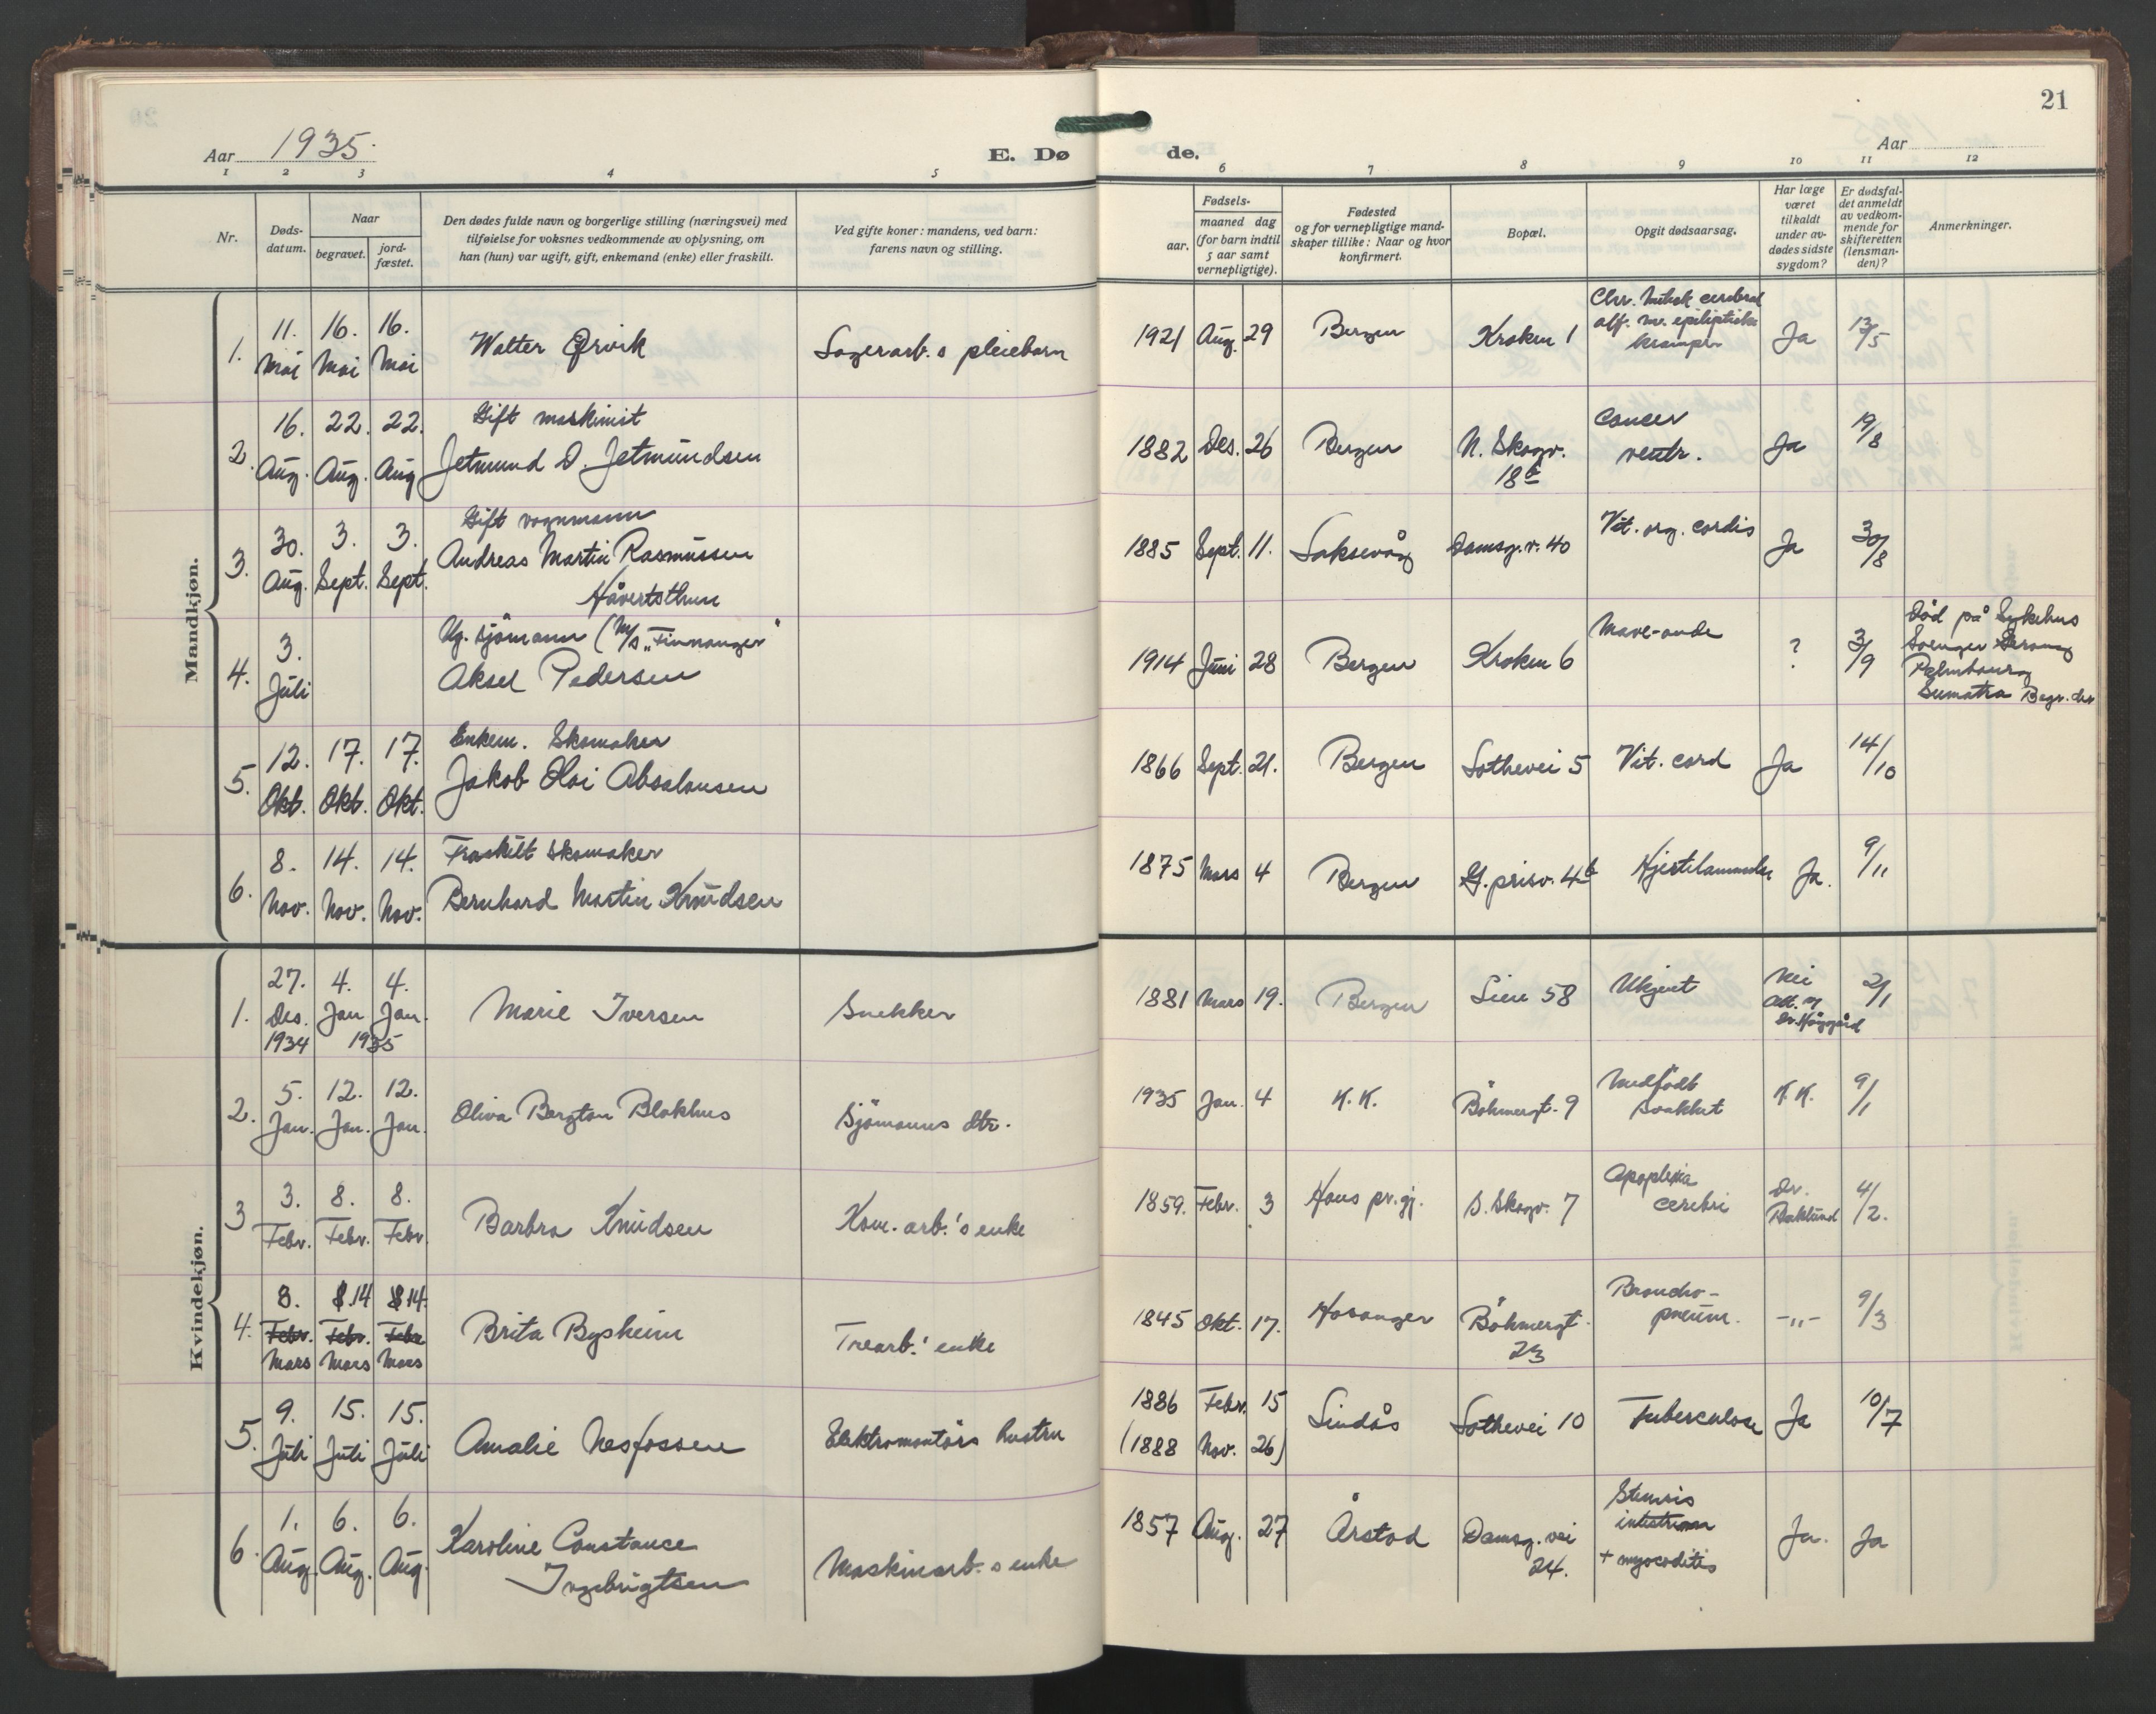 21
Aar 1935.
E. Dø
de.
Aar
1 2 3 4 5
6 7 8 9 10 11 12
Nr.
Døds-
datum.
Naar
begravet.
jord-
fæstet.
Den dødes fulde navn og borgerlige stilling (næringsvei) med
tilføielse for voksnes vedkommende av oplysning, om
han (hun) var ugift, gift, enkemand (enke) eller fraskilt.
Ved gifte koner: mandens, ved barn:
farens navn og stilling.
Fødsels-
aar.
maaned dag
(for barn indtil
5 aar samt
vernepligtige).
Fødested
og for vernepligtige mand-
skaper tillike: Naar og hvor
konfirmert.
Bopæl.
Opgit dødsaarsag.
Har læge
været
tilkaldt
under av-
dødes sidste
sygdom?
Er dødsfal-
det anmeldt
av vedkom-
mende for
skifteretten
(lensman-
den)?
Anmerkninger.
Mandkjøn.
1. 11. Mai 16. Mai 16. Mai
Walter Ørvik
Lagerarb.s pleiebarn
1921 Aug. 29 Bergen Kroken 1
Ja 13/5
2. 16. Aug. 22. Aug. 22. Aug
Gift maskinist
Jetmund D. Jetmundsen
1882 Des. 26 Bergen N. Skogv.
18b
Cancer
ventr.
Ja 19/8
3. 30. Aug. 3. Sept. 3. Sept.
Gift vognmann
Andreas Martin Rasmussen
Håvertsthun
1885 Sept. 11. Laksevåg Damsg.v. 40 Vit. org. cordis Ja 30/8
4. 3. Juli
Ug. sjömann (M/S „Finnanger"
Aksel Pedersen
1914 Juni 28 Bergen Kroken 6 Mave-onde ? 3/9
Död på Sykehus
Soengei Gerong
Palembang
Sumatra Begr. der
5. 12. Okt. 17. Okt. 17. Okt.
Enkem. Skomaker
Jakob Olai Absalonsen
1866 Sept. 21. Bergen Lothevei 5 Vit. cord Ja 14/10
6. 8. Nov. 14. Nov. 14. Nov.
Fraskilt skomaker
Bernhard Martin Knudsen
1875 Mars 4 Bergen G. prisv. 4b Hjertelammelse Ja. 9/11
Kvindekjøn.
1. 27. Des. 1934 4. Jan 4. Jan. 1935
Marie Iversen
Snekker
1881 Mars 19. Bergen Lien 58 Ukjent Nei
2/1
2. 5. Jan. 12. Jan. 12. Jan.
Oliva Bergton Blokhus
Sjömanns dtr.
1935 Jan. 4 K.K. Böhmergt. 9 Medfödt
svakhet
K.K. 9/1
3 3. Febr. 8. Febr. 8. Febr.
Barbra Knudsen
Kom. arb.'s enke
1859. Febr. 3 Haus pr.gj. S. Skogv. 7 Apoplexia
cerebri
Dr.
Baklund
4/2.
4. 8. Febr. Mars 8.14 Febr. Mars 8 14. Febr. Mars
Brita Bysheim
Trearb.' enke
1845 Okt. 17. Hosanger Böhmergt.
23
Broncho-
pneum.
-„- 9/3
5. 9. Juli 15. Juli 15. Juli
Amalie Nesfossen
Elektromontörs hustru
1886 Febr. 15
(1888 Nov. 26)
Lindås Lothevei 10 Tuberculose Ja 10/7
6. 1. Aug. 6. Aug. 6. Aug.
Karoline Constance
Ingebrigtsen
Maskinarb.s enke
1857 Aug. 27 Årstad Damsg. vei
24.
+ myocoditis
Ja. Ja